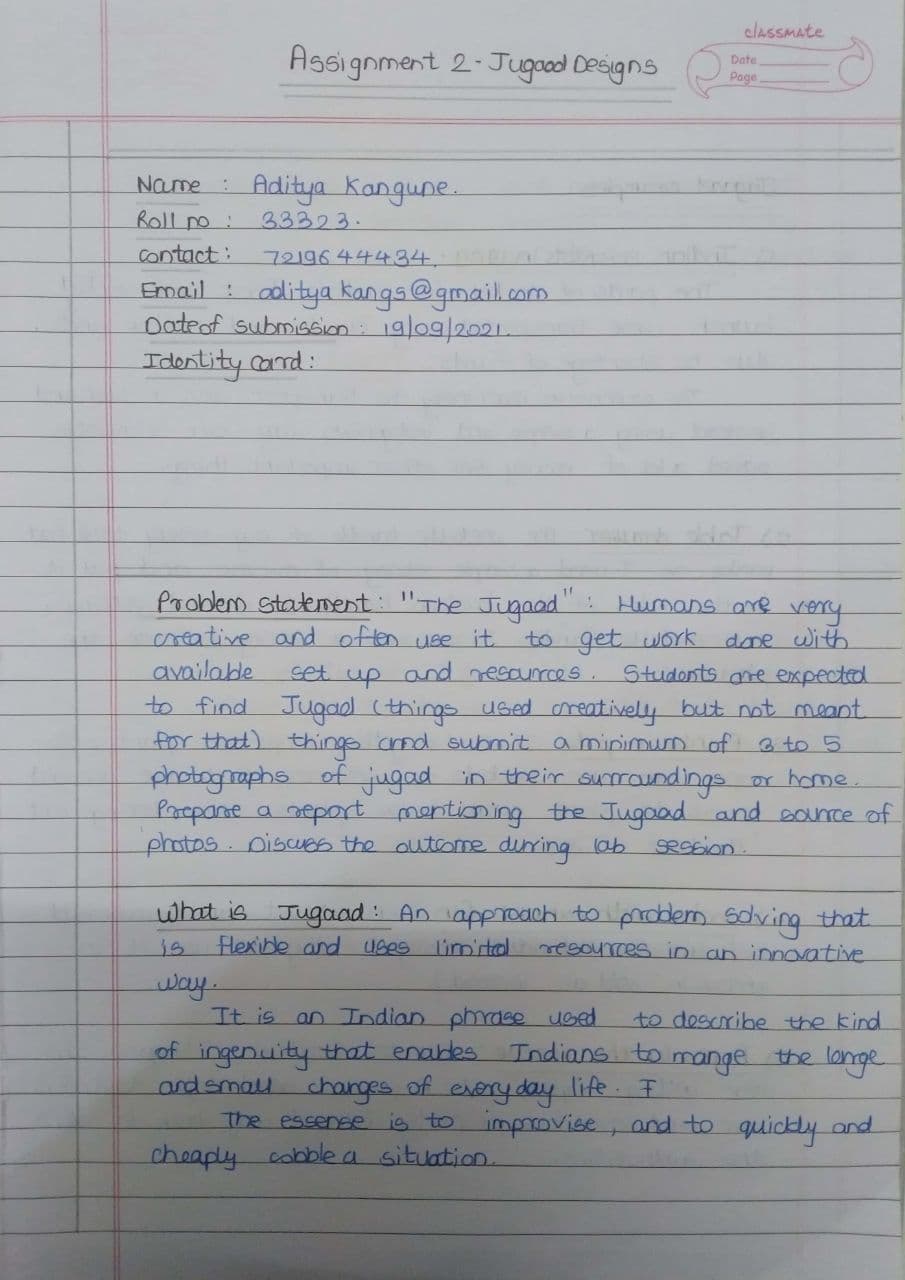 classmate
Date
Page
Assignment 2 - Jugaad Designs
Name : Aditya Kangune.
Roll no : 33323.
contact : 7219644434.
Email : adityakangs@gmail.com
Date of submission : 19/09/2021.
Identity card :
Problem statement : "The Jugaad" : Humans are very
creative and often use it to get work done with
available set up and resources. Students are expected
to find Jugad (things used creatively but not meant
for that) things and submit a minimum of 3 to 5
photographs of jugad in their surroundings or home.
Prepare a report mentioning the Jugaad and source of
photos. Discuss the outcome during lab session.
What is Jugaad : An approach to problem solving that
is flexible and uses limited resources in an innovative
way.
It is an Indian phrase used to describe the kind
of ingenuity that enables Indians to mange the large
and small changes of everyday life.
The essense is to improvise, and to quickly and
cheaply cobble a situation.